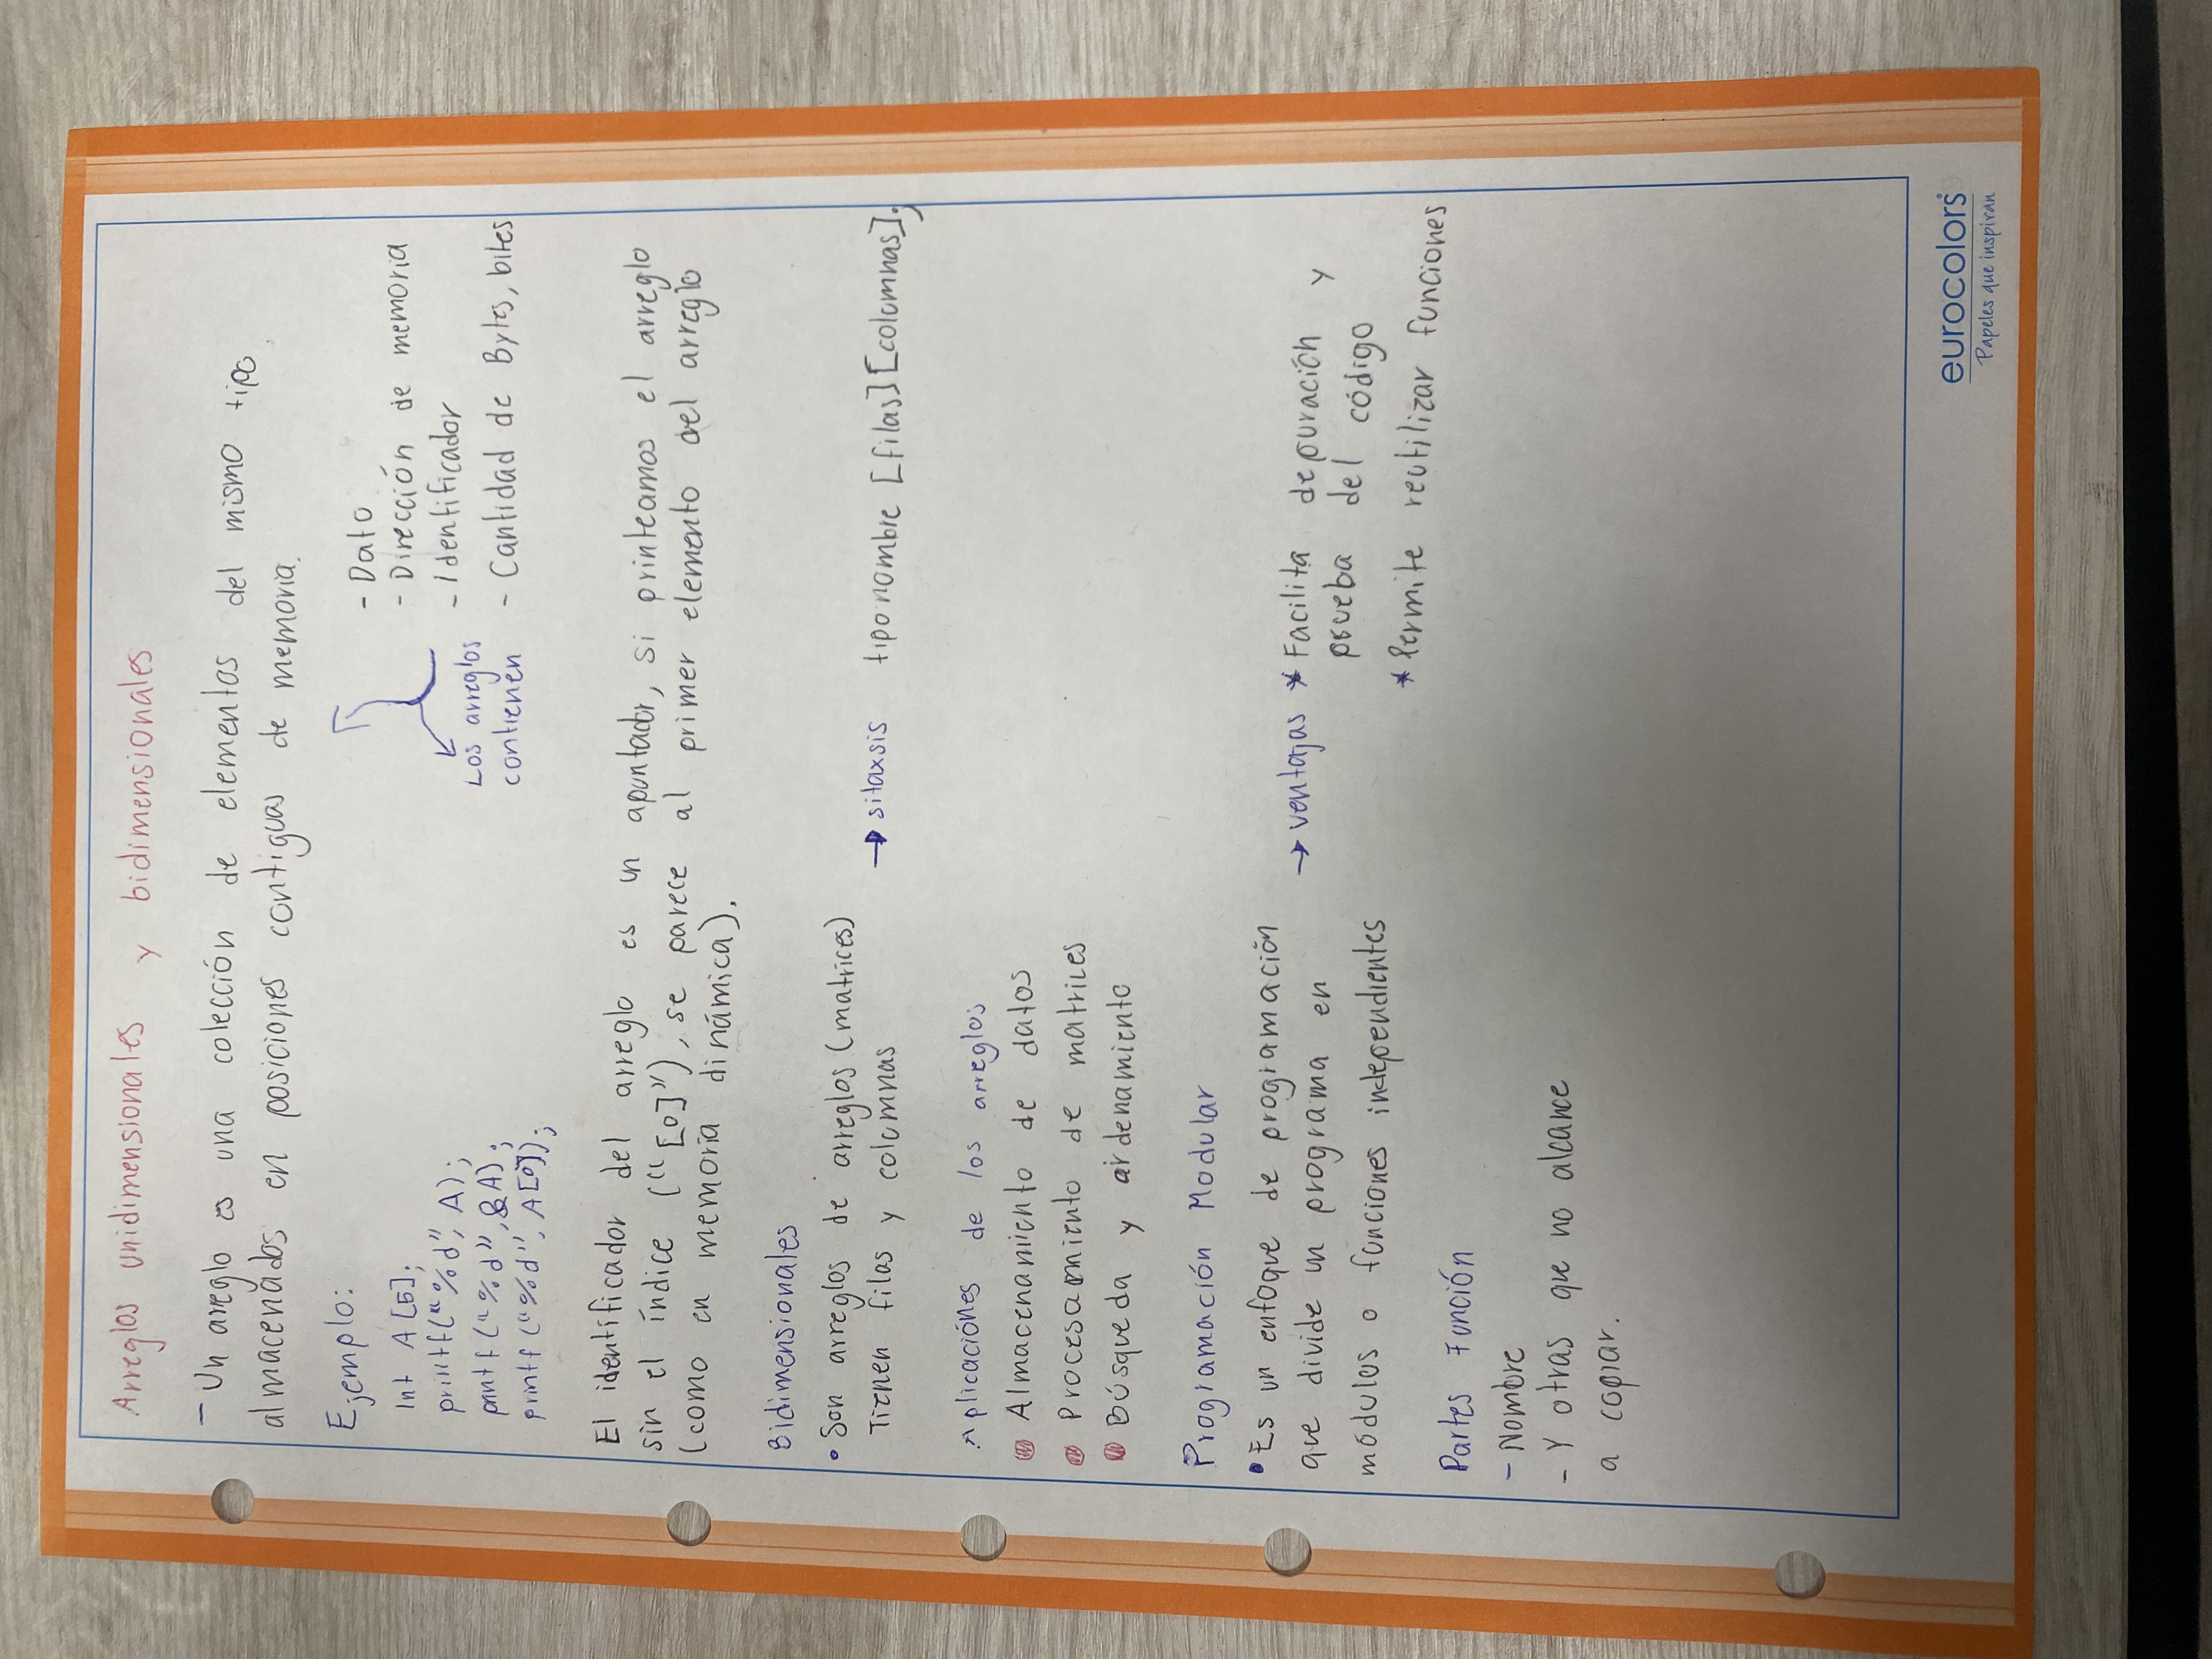 Arreglos unidimensionales y bidimensionales
- Un areglo es una colección de elementos del mismo tipo
almacenados en posiciones contiguas de memoria.
Ejemplo:
int A [5];
printf("%d", A);
printf("%d", &A);
printf("%d", A[0]);
Los arreglos
contienen
- Dato
- Dirección de memoria
- Identificador
- Cantidad de Bytes, bites
El identificador del arreglo es un apuntador, si printeamos el arreglo
sin el índice ("[0]"), se parece al primer elemento del arreglo
(como en memoria dinámica).
Bidimensionales
• Son arreglos de arreglos (matrices)
Tienen filas y columnas
→ sitaxsis tipo nombre [filas][columnas];
Aplicaciónes de los arreglos
Almacenamiento de datos
Procesamiento de matrices
Búsqueda y ordenamiento
Programación Modular
• Es un enfoque de programación
que divide un programa en
módulos o funciones independientes
→ ventajas * Facilita depuración y
prueba del código
* Permite reutilizar funciones
Partes Función
- Nombre
- Y otras que no alcance
a copiar.
eurocolors
Papeles que inspiran